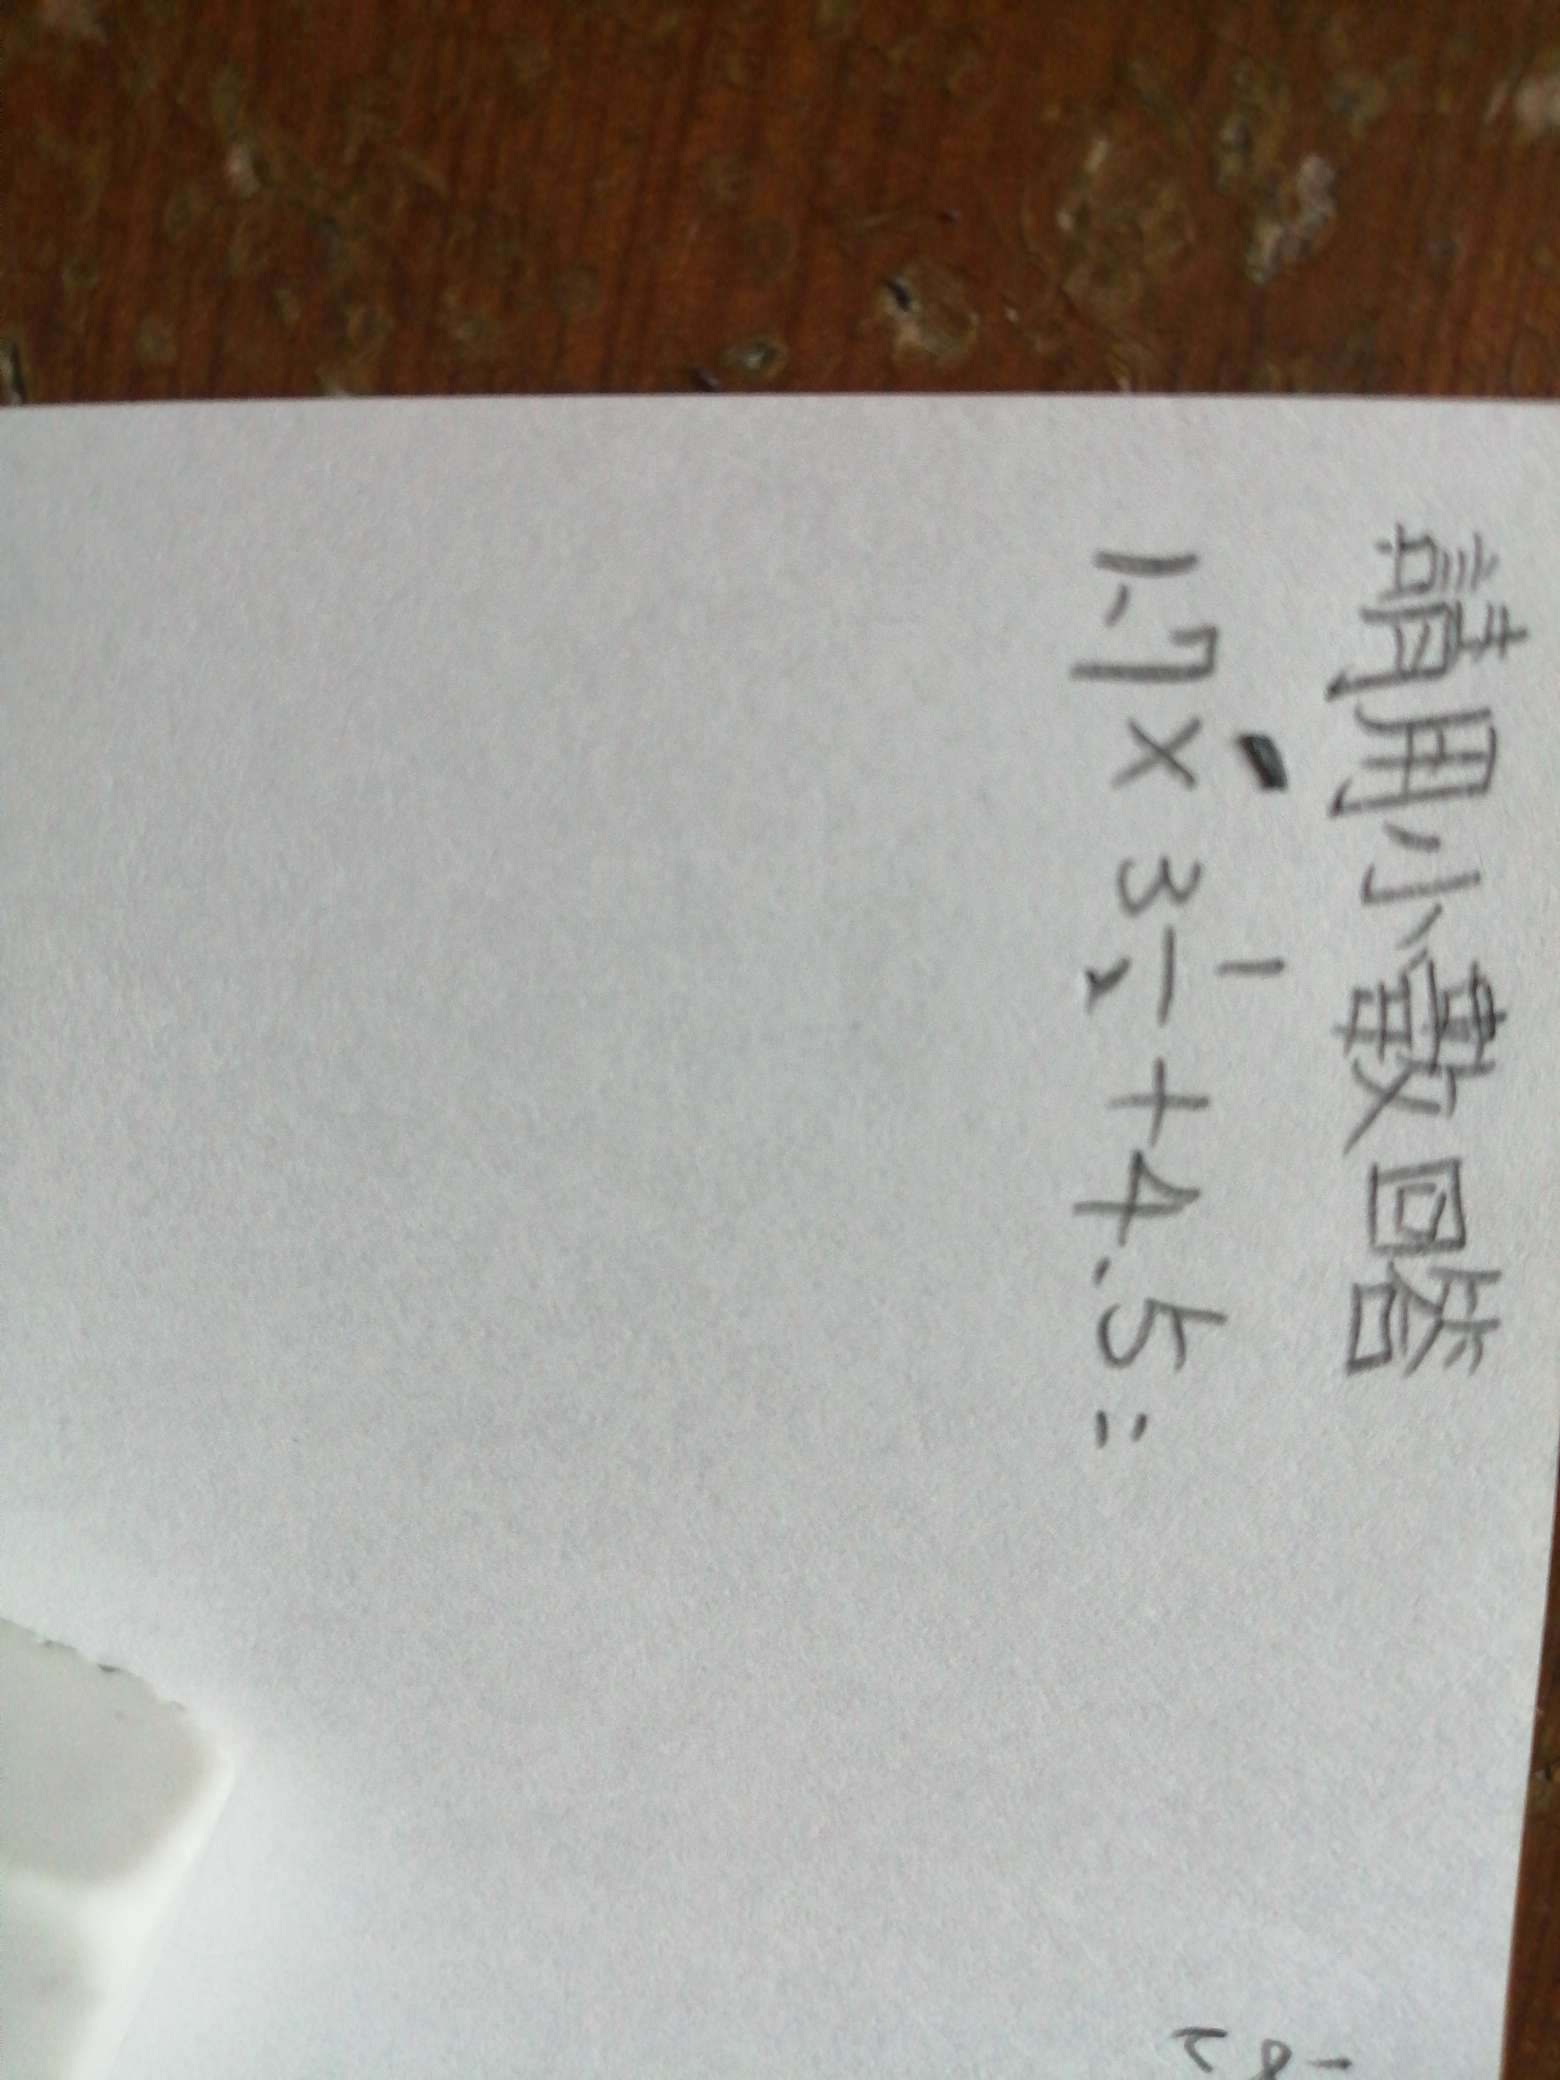 請用小數回答
1.7 × 3 1/2 + 4.5 =